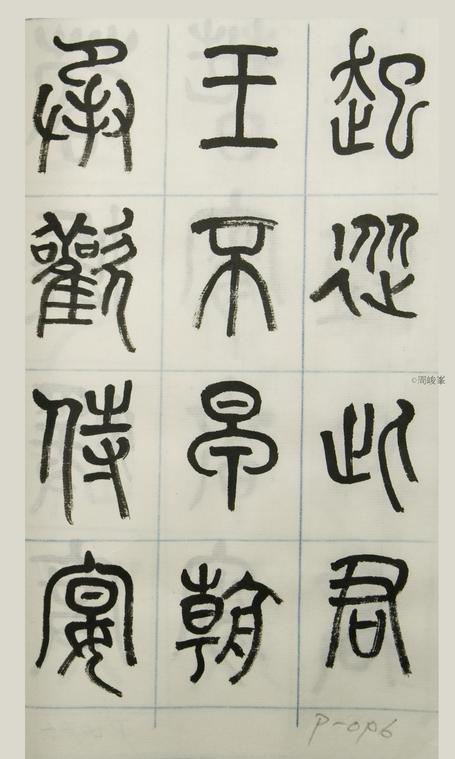 起從此君
王不早朝
承歡侍宴
©周峻峯
P-0P6